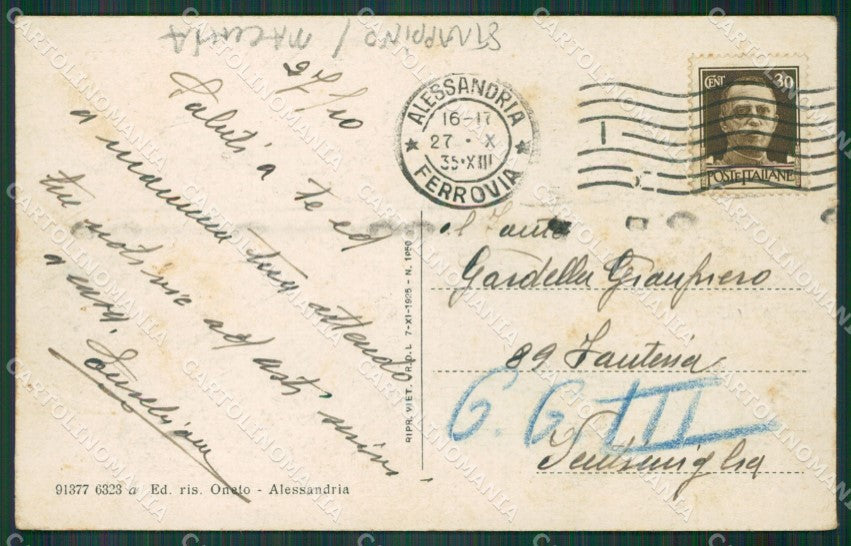 STRAPPINO / MACCHIA
27/10
Saluti a te ed
a mamma tua attendo
tue notizie ad asti
a casa.
ALESSANDRIA
16-17
27 · X
35·XIII
FERROVIA
CENT 30
POSTE ITALIANE
Gardella
89 Fanteria
G. G. III
Ventimiglia
RIPR. VIET. T.R.D.L. 7-XI-1925 - N. 1950
91377 6323 a Ed. ris. Oneto - Alessandria
CARTOLINOMANIA